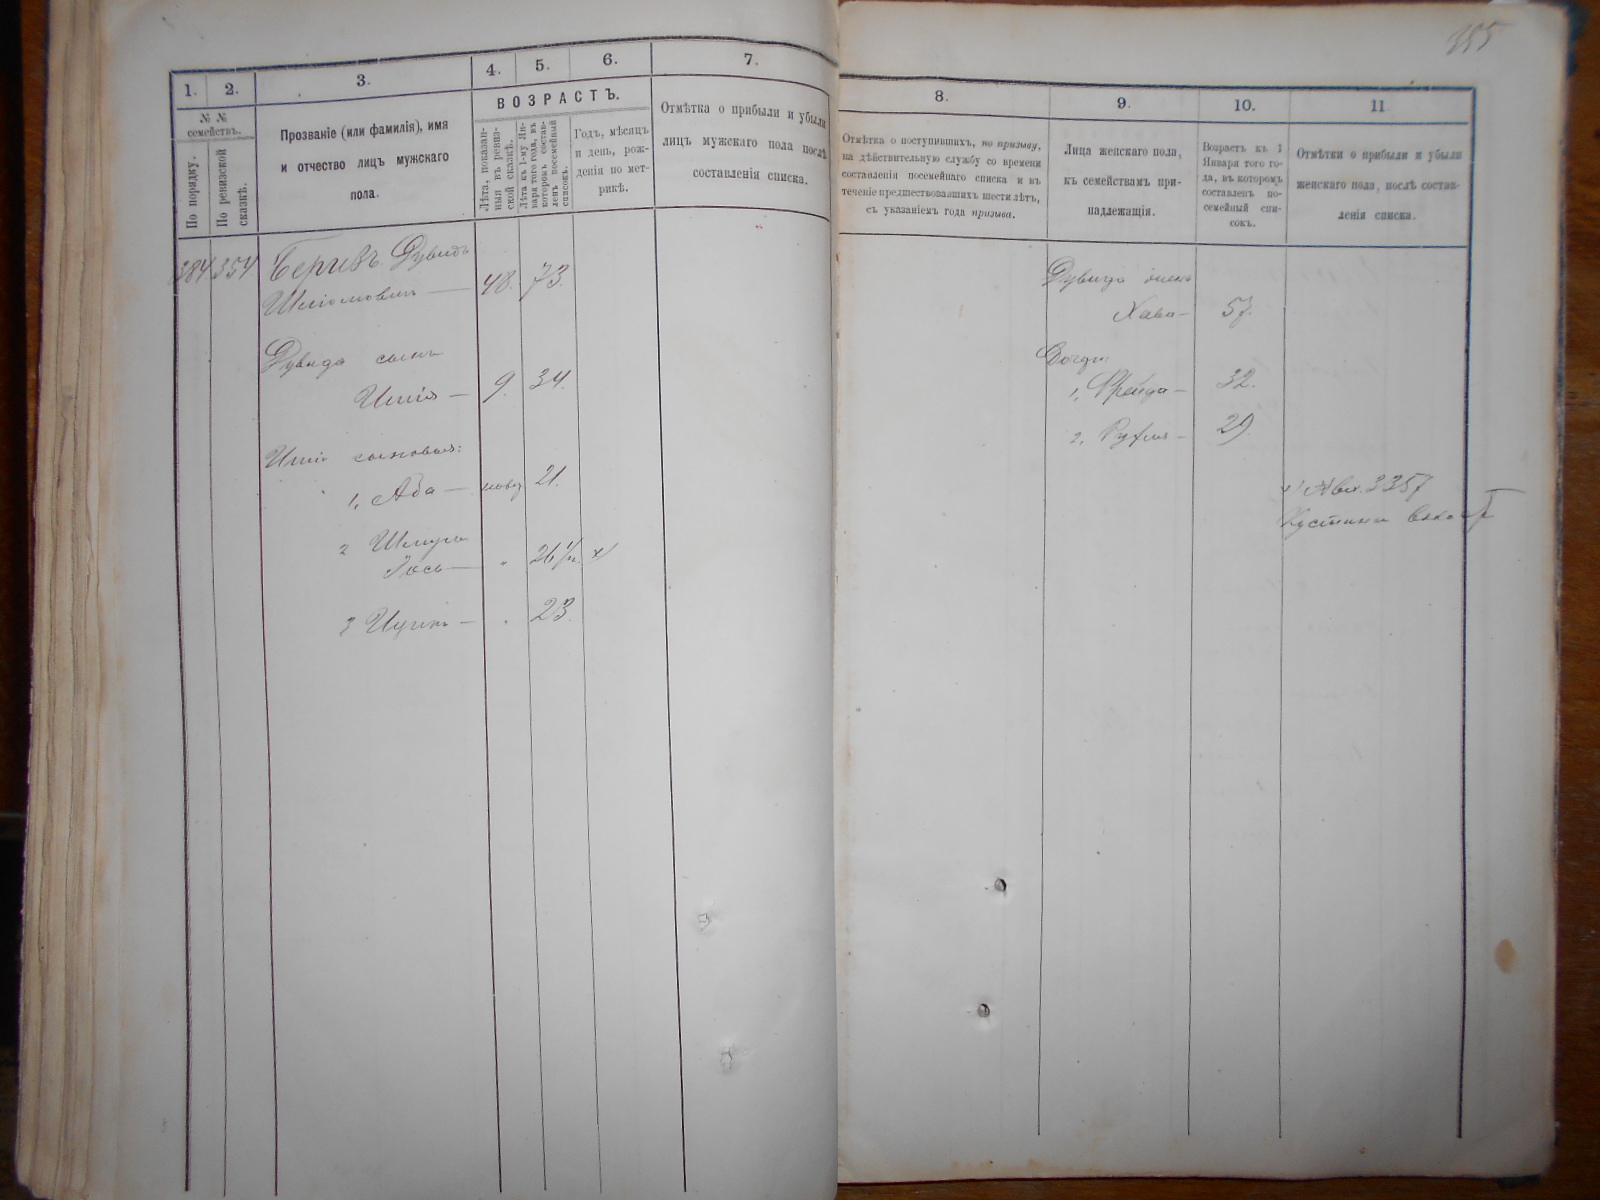 355
1.
2.
3.
4.
5.
6.
7.
№ №
семействъ.
По порядку.
По ревизской
сказкѣ.
Прозваніе (или фамилія), имя
и отчество лицъ мужскаго
пола.
ВОЗРАСТЪ.
Лѣта, показан-
ныя въ ревиз-
ской сказкѣ.
Лѣта къ 1-му Ян-
варя того года, въ
которомъ состав-
ленъ посемейный
списокъ.
Годъ, мѣсяцъ
и день, рож-
денія по мет-
рикѣ.
Отмѣтка о прибыли и убыли
лицъ мужскаго пола послѣ
составленія списка.
384 354 Беривъ Дувидъ
Шліомовичъ — 48. 73.
Дувида сынъ
Итія — 9. 34.
сыновья:
1, Аба — 21.
2 Шмуль
Іось — " 26 1/2. х/
3 — " 23.
8.
9.
10.
11
Отмѣтка о поступившихъ, по призыву,
на дѣйствительную службу со времени
составленія посемейнаго списка и въ
теченіе предшествовавшихъ шести лѣтъ,
съ указаніемъ года призыва.
Лица женскаго пола,
къ семействамъ при-
надлежащія.
Возрастъ къ 1
Января того го-
да, въ которомъ
составленъ по-
семейный спи-
сокъ.
Отмѣтки о прибыли и убыли
женскаго пола, послѣ состав-
ленія списка.
Дувида жена
Хава — 57.
Дочери
1, Фрейда — 32.
2, Рухля — 29.
х/ 3357